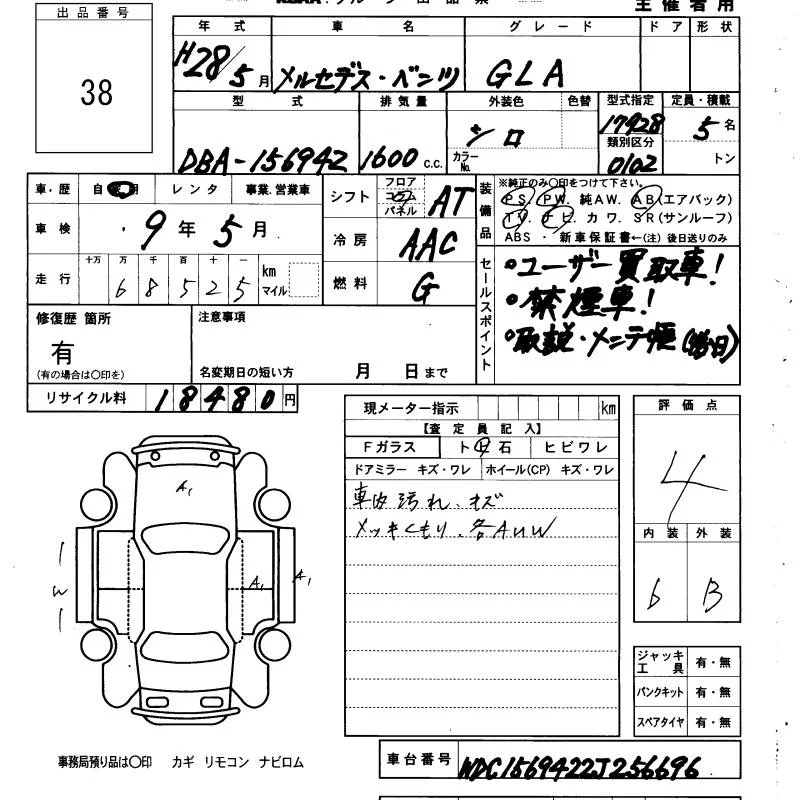 主催者用
出品番号
38
年式 車名 グレード ドア 形状
H28/5月 メルセデス・ベンツ GLA
型式 排気量 外装色 色替 型式指定 定員・積載
DBA-156942 1600 c.c. シロ カラーNo. 17928 5名
類別区分 0102 トン
車・歴 自 用 レンタ 事業.営業車
車検 9年5月
走行 十万 万 千 百 十 一 km マイル
68525
シフト フロア コラム パネル AT
冷房 AAC
燃料 G
装備品 ※純正のみ○印をつけて下さい。
PS. PW. 純AW. AB(エアバック)
TV. ナビ. カワ. SR(サンルーフ)
ABS ・ 新車保証書←(注) 後日送りのみ
セールスポイント
・ユーザー買取車!
・禁煙車!
・取説・メンテ帳(後日)
修復歴 箇所
有
(有の場合は○印を)
注意事項
名変期日の短い方 月 日まで
リサイクル料 18480円
現メーター指示 km
【査定員記入】
Fガラス ト 石 ヒビワレ
ドアミラー キズ・ワレ ホイール(CP) キズ・ワレ
車内汚れ、キズ
メッキくもり、各AUW
評価点
4
内装 外装
6 B
A1
A1 A1
W
ジャッキ工具 有・無
パンクキット 有・無
スペアタイヤ 有・無
事務局預り品は○印 カギ リモコン ナビロム
車台番号 WDC1569422J256696